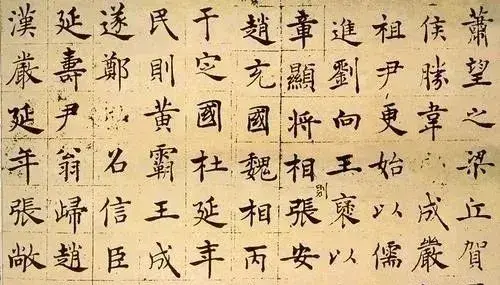 蕭望之梁丘賀
侯勝韋成嚴
祖尹更始以儒
進劉向王褒以
章顯將相則張安
趙充國魏相丙
于定國杜延年
民則黃霸王成
遂鄭召信臣
延壽尹翁歸趙
漢嚴延年張敞